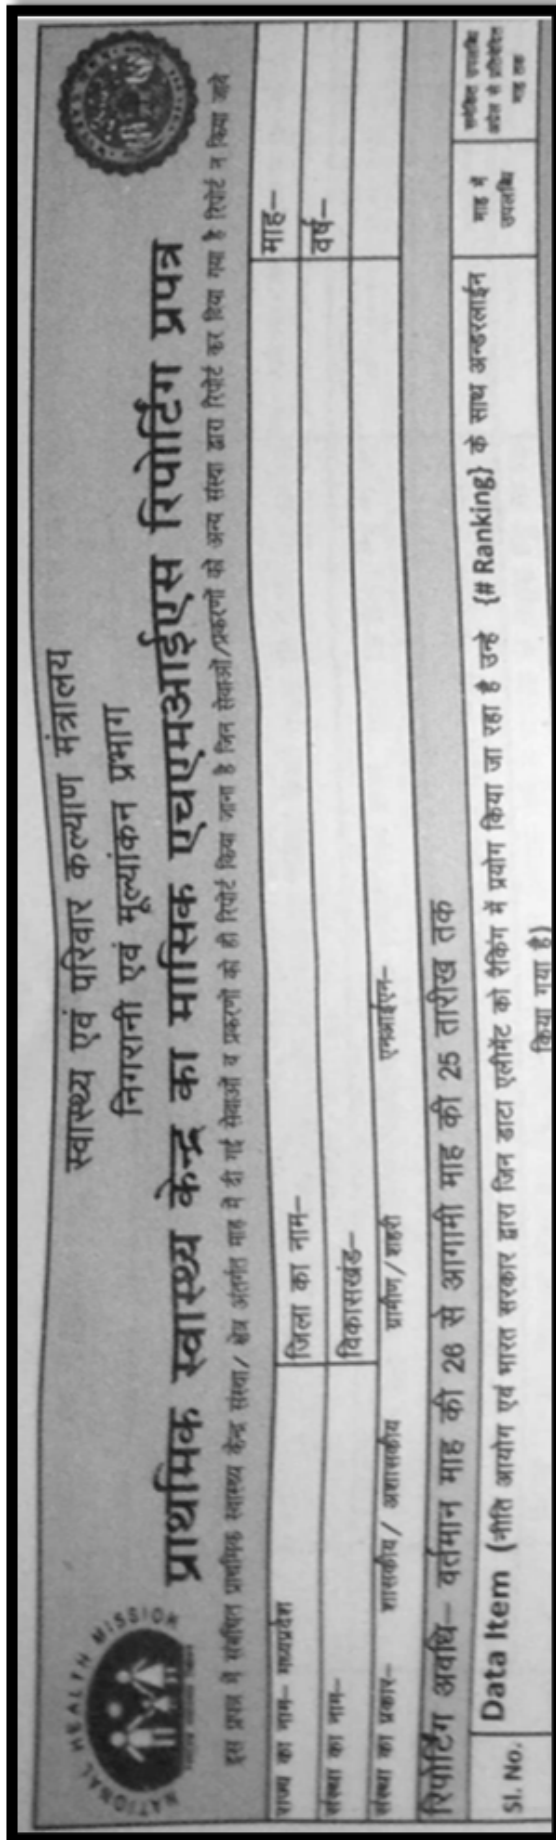 NATIONAL HEALTH MISSION
स्वास्थ्य एवं परिवार कल्याण मंत्रालय
निगरानी एवं मूल्यांकन प्रभाग
प्राथमिक स्वास्थ्य केन्द्र का मासिक एचएमआईएस रिपोर्टिंग प्रपत्र
इस प्रपत्र में संबंधित प्राथमिक स्वास्थ्य केन्द्र संस्था/ क्षेत्र अंतर्गत माह में दी गई सेवाओं व प्रकरणों को ही रिपोर्ट किया जाना है जिन सेवाओं/प्रकरणों को अन्य संस्था द्वारा रिपोर्ट कर दिया गया है रिपोर्ट न किया जावे
राज्य का नाम– मध्यप्रदेश जिला का नाम– माह–
संस्था का नाम– विकासखंड– वर्ष–
संस्था का प्रकार– शासकीय/ अशासकीय ग्रामीण/ शहरी एनआईएन–
रिपोर्टिंग अवधि– वर्तमान माह की 26 से आगामी माह की 25 तारीख तक
Sl. No. Data Item (नीति आयोग एवं भारत सरकार द्वारा जिन डाटा एलीमेंट को रैंकिंग में प्रयोग किया जा रहा है उन्हे {# Ranking} के साथ अन्डरलाईन
किया गया है)
माह में
उपलब्धि
उपलब्धि
माह तक